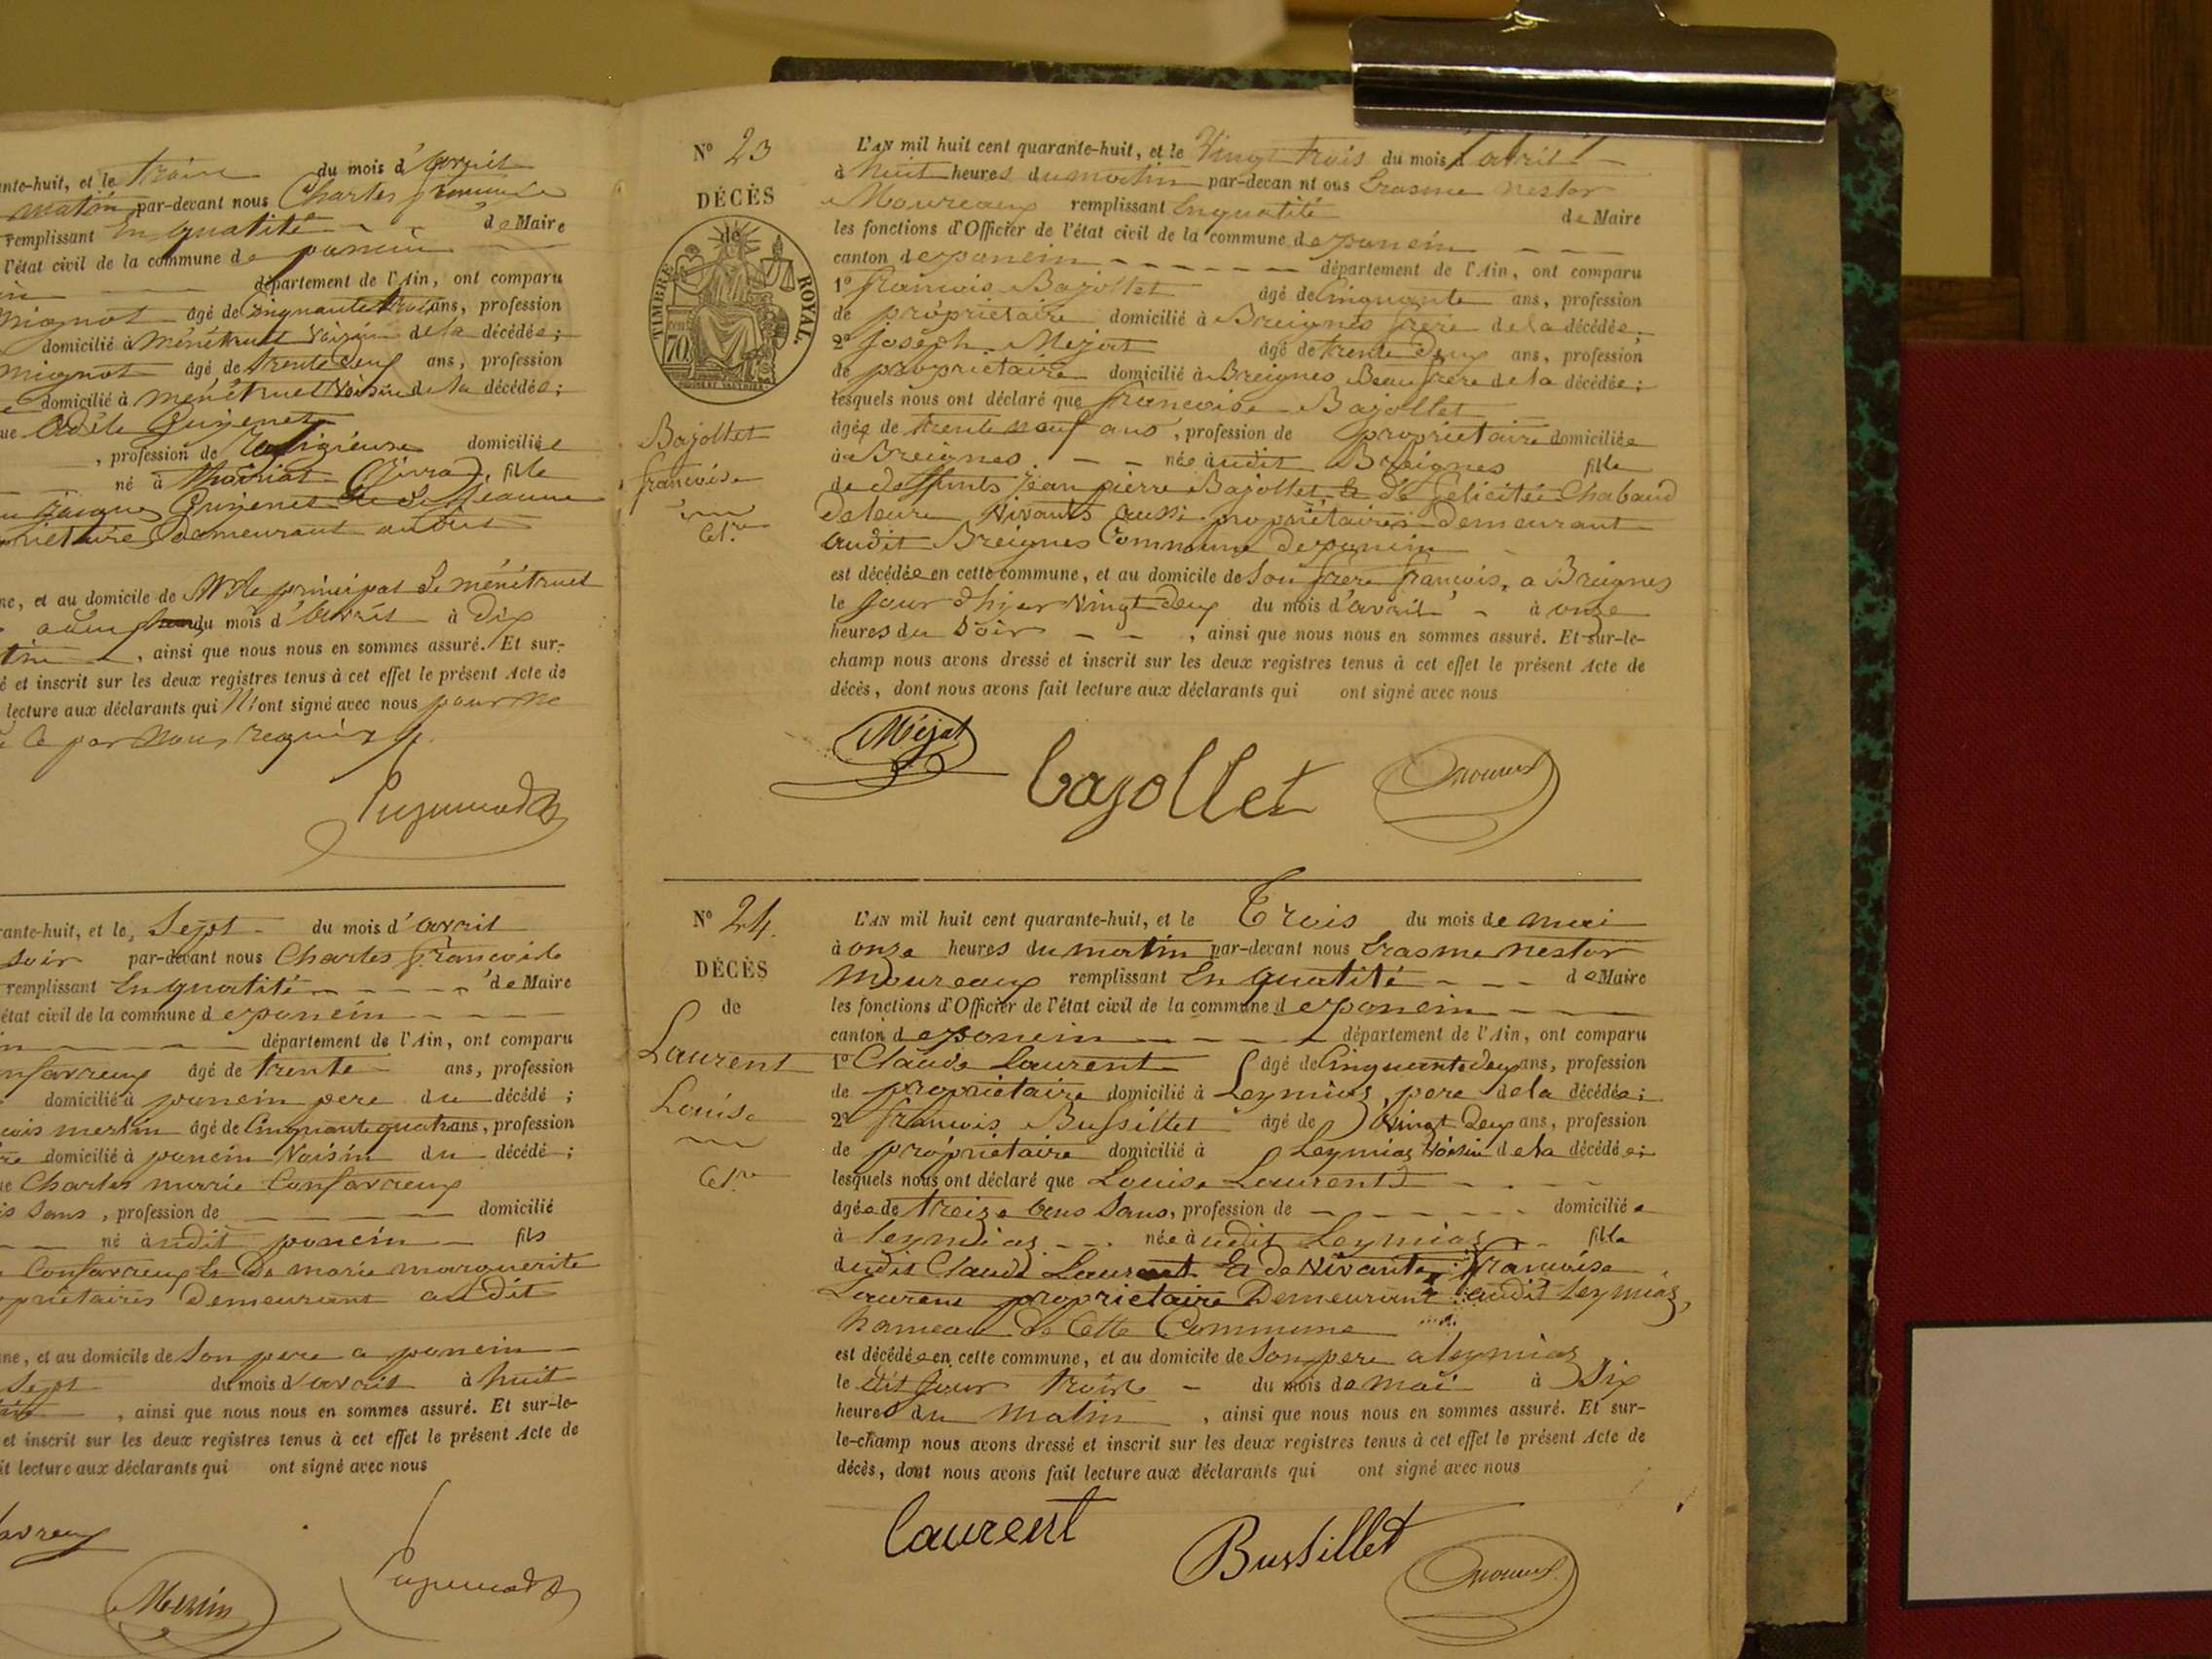 nte-huit, et le du mois d'avril
matin par-devant nous Charles
remplissant En qualité de Maire
l'état civil de la commune de poncin
département de l'Ain, ont comparu
mignot âgé de Cinquante trois ans, profession
domicilié à Ménétruel Voisin de la décédée;
mignot âgé de trente deux ans, profession
domicilié à ménétruel Voisin de la décédée;
ue
, profession de Religieuse domiciliée
né à fille
demeurant audit
ne, et au domicile de principal de ménétruel
du mois d'avril à Dix
, ainsi que nous nous en sommes assuré. Et sur-
é et inscrit sur les deux registres tenus à cet effet le présent Acte de
lecture aux déclarants qui N'ont signé avec nous pour ne
ce par nous requis
rante-huit, et le Sept du mois d'avril
soir par-devant nous Charles
remplissant En qualité de Maire
état civil de la commune de poncin
département de l'Ain, ont comparu
âgé de trente ans, profession
domicilié à poncin pere du décédé;
cois merlin âgé de Cinquante quatre ans, profession
re domicilié à poncin Voisin du décédé;
ue Charles marie Confavreux
, profession de domicilié
né audit poncin fils
Confavreux Et De marie marguerite
opriétaires Demeurant audit
ne, et au domicile de Son pere a poncin
Sept du mois d'avril à huit
, ainsi que nous nous en sommes assuré. Et sur-le-
et inscrit sur les deux registres tenus à cet effet le présent Acte de
it lecture aux déclarants qui ont signé avec nous
avreux
Merlin
N° 23
DÉCÈS
de
TIMBRE ROYAL.
70
Bajollet
francoise
Cel.re
L'AN mil huit cent quarante-huit, et le Vingt trois du mois d'avril
à huit heures du matin par-devan nt ous Erasme nestor
Moureaux remplissant En qualité de Maire
les fonctions d'Officier de l'état civil de la commune de poncin
canton de poncin département de l'Ain, ont comparu
1° francois Bajollet âgé de Cinquante ans, profession
de propriétaire domicilié à Breignes frere de la décédée;
2° joseph Mejat âgé de trente deux ans, profession
de propriétaire domicilié à Breignes Beau frere de la décédée;
lesquels nous ont déclaré que francoise Bajollet
âgée de trente neuf ans, profession de propriétaire domiciliée
à Breignes née audit Breignes fille
de deffunts jean pierre Bajollet Et De felicitée Chabaud
Deleure Vivants aussi propriétaires demeurant
audit Breignes Commune de poncin
est décédée en cette commune, et au domicile de Son frere francois, a Breignes
le jour d'hier Vingt deux du mois d'avril à onze
heures du Soir, ainsi que nous nous en sommes assuré. Et sur-le-
champ nous avons dressé et inscrit sur les deux registres tenus à cet effet le présent Acte de
décès, dont nous avons fait lecture aux déclarants qui ont signé avec nous
Méjat
bajollet
N° 24.
DÉCÈS
de
Laurent
Louise
Cel.re
L'AN mil huit cent quarante-huit, et le Trois du mois de mai
à onze heures du matin par-devant nous Erasme nestor
Moureaux remplissant En qualité de Maire
les fonctions d'Officier de l'état civil de la commune de poncin
canton de poncin département de l'Ain, ont comparu
1° Claude Laurent âgé de Cinquante deux ans, profession
de propriétaire domicilié à Leymias, pere de la décédée;
2° francois Bussillet âgé de Vingt Deux ans, profession
de propriétaire domicilié à Leymias Voisin de la décédée;
lesquels nous ont déclaré que Louise Laurent
âgée de treize ans Sans, profession de domiciliée
à leymias née audit Leymias fille
dudit Claude Laurent Et de Vivante francoise
Laurent propriétaire Demeurant audit Leymias,
hameau de Cette Commune
est décédée en cette commune, et au domicile de Son pere a leymias
le dit jour trois du mois de mai à Dix
heures du Matin, ainsi que nous nous en sommes assuré. Et sur-
le-champ nous avons dressé et inscrit sur les deux registres tenus à cet effet le présent Acte de
décès, dont nous avons fait lecture aux déclarants qui ont signé avec nous
Laurent
Bussillet